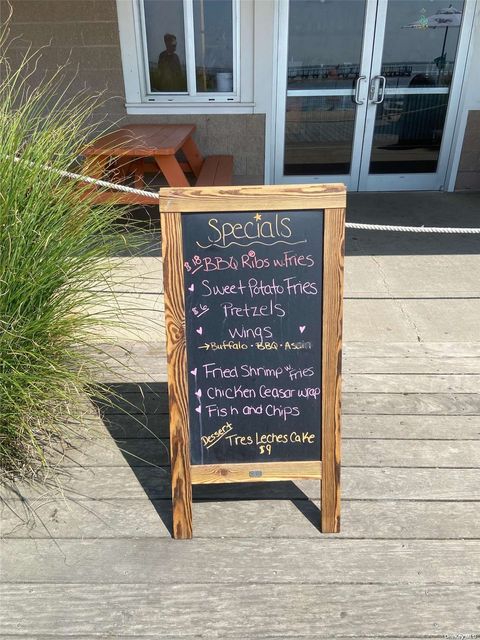 Specials
$18 BBQ Ribs w Fries
Sweet Potato Fries
$6 Pretzels
Wings
→ Buffalo • BBQ • Asain
Fried Shrimp w/ Fries
Chicken Ceasar wrap
Fish and Chips
Dessert
Tres Leches Cake
$9